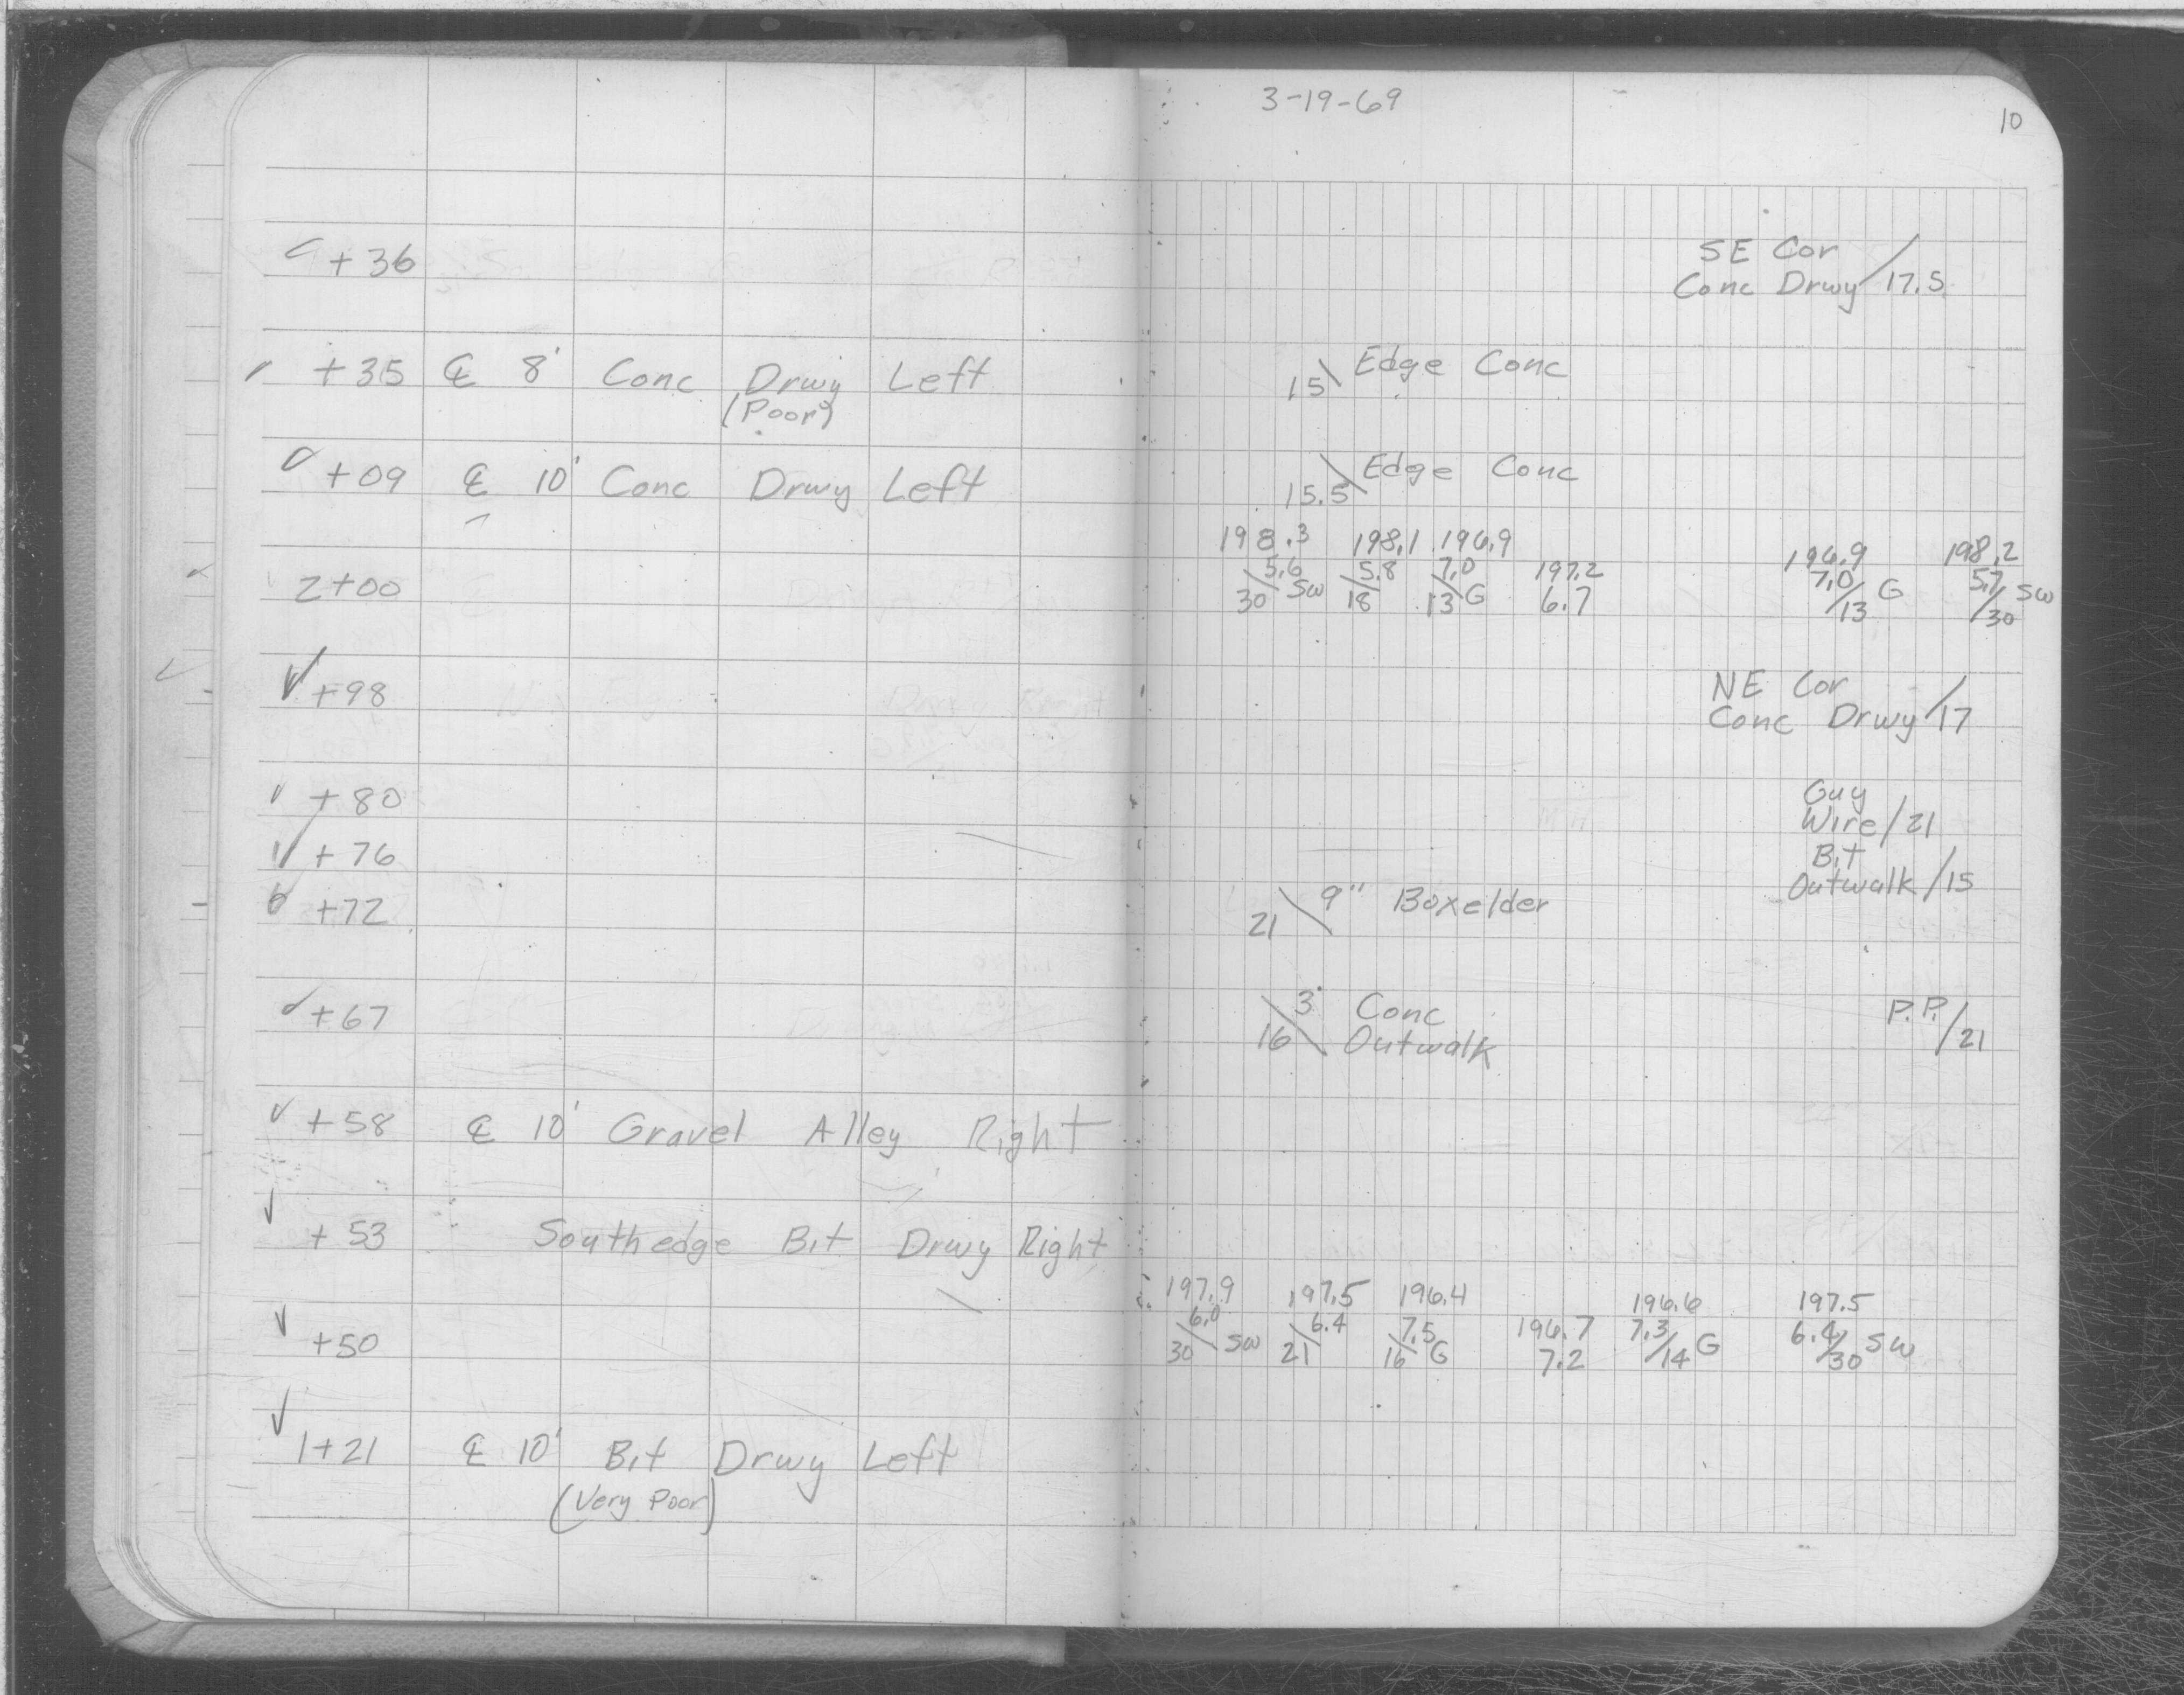 3-19-69
10
+36
SE Cor
Conc Drwy / 17.5
+35 ℄ 8' Conc Drwy Left
(Poor)
15 \ Edge Conc
+09 ℄ 10' Conc Drwy Left
15.5 \ Edge Conc
198.3 198.1 196.9 196.9 198.2
2+00
5.6 5.8 7.0 197.2 7.0 5.7
30 SW 18 13 G 6.7 13 G 30 SW
+98
NE Cor
Conc Drwy / 17
+80
Guy
Wire / 21
+76
Bit
Outwalk / 15
+72
21 \ 9" Boxelder
+67
3' Conc
16 \ Outwalk
P.P. / 21
+58 ℄ 10' Gravel Alley Right
+53 South edge Bit Drwy Right
197.9 197.5 196.4 196.6 197.5
+50
6.0 6.4 7.5 196.7 7.3 6.4
30 SW 21 16 G 7.2 14 G 30 SW
1+21 ℄ 10' Bit Drwy Left
(Very Poor)